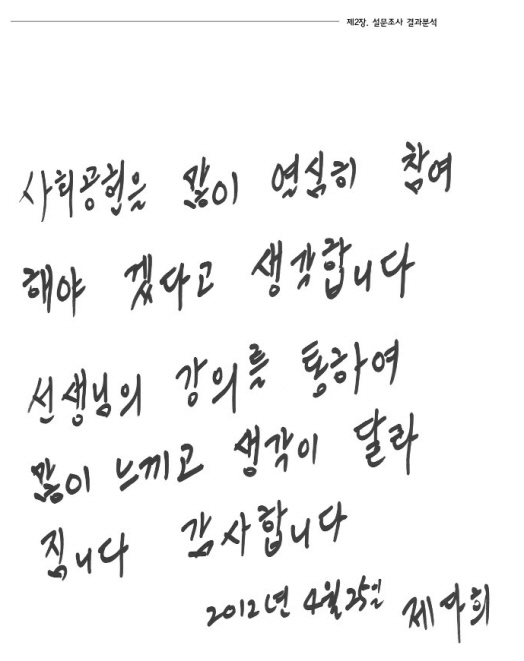 제2장. 설문조사 결과분석
사회공헌을 많이 열심히 참여
해야 겠다고 생각합니다
선생님의 강의를 통하여
많이 느끼고 생각이 달라
집니다 감사합니다
2012년 4월 25일